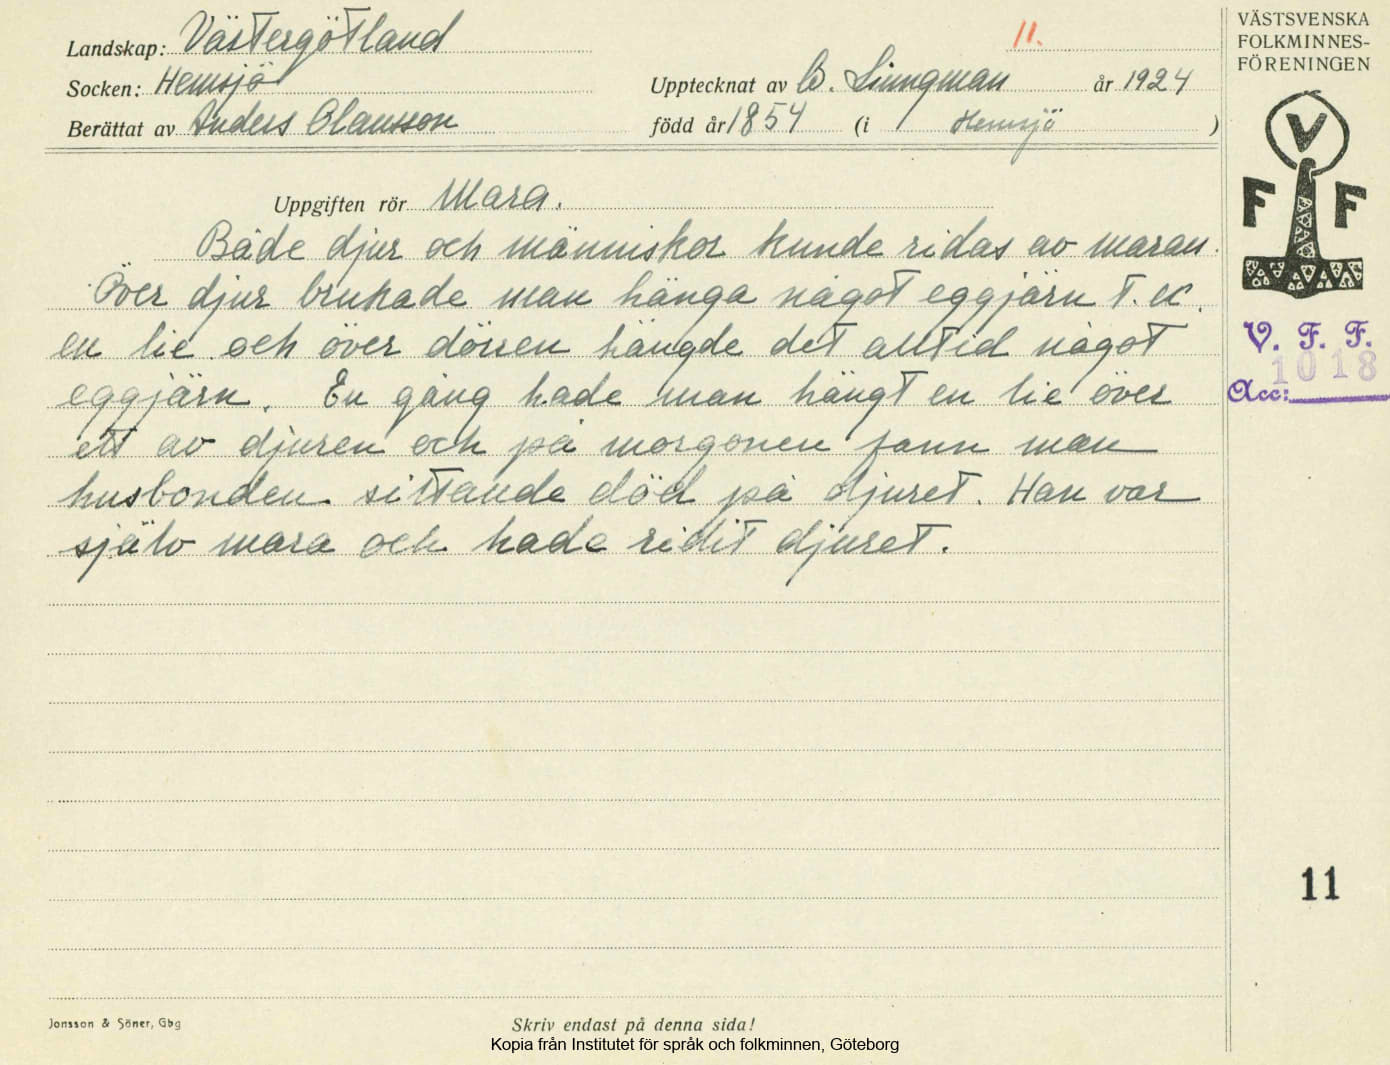 Landskap: Västergötland
11.
Socken: Hemsjö
Upptecknat av W. Liungman år 1924
Berättat av Anders Olausson
född år 1854 (i Hemsjö )
Uppgiften rör Mara.
Både djur och människor kunde ridas av maran.
Över djur brukade man hänga något eggjärn t. ex.
en lie och över dörren hängde det alltid något
eggjärn. En gång hade man hängt en lie över
ett av djuren och på morgonen fann man
husbonden sittande död på djuret. Han var
själv mara och hade ridit djuret.
VÄSTSVENSKA
FOLKMINNES-
FÖRENINGEN
V
F F
V. F. F.
1018
Acc:
11
Jonsson & Söner, Gbg
Skriv endast på denna sida!
Kopia från Institutet för språk och folkminnen, Göteborg